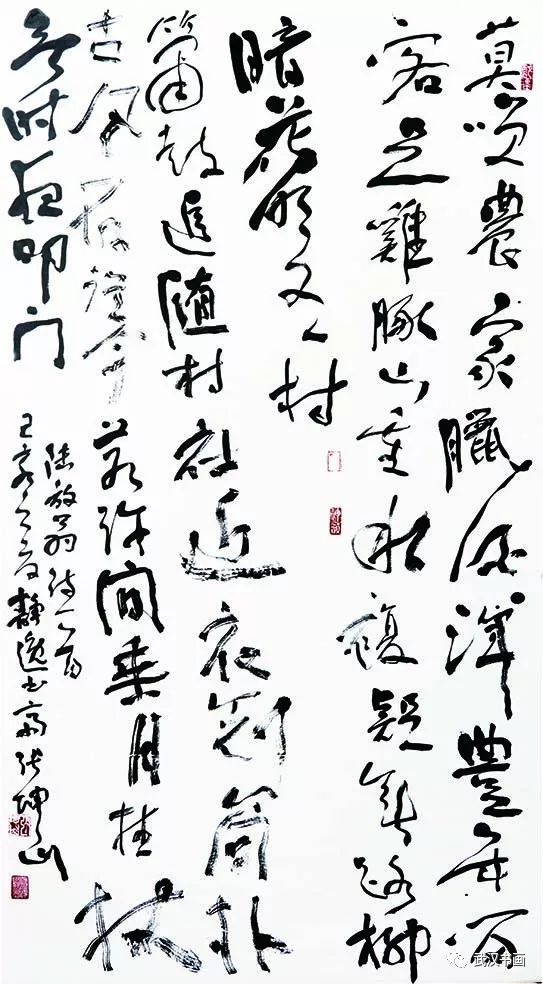 莫笑農家臘酒渾豐年留
客足雞豚山重水複疑無路柳
暗花明又一村
簫鼓追隨村社近衣冠簡朴
古風存從今若許閒乘月拄杖
無时夜叩门
陸放翁诗一首
己亥之夏靜逸书斋张坤山
武汉书画